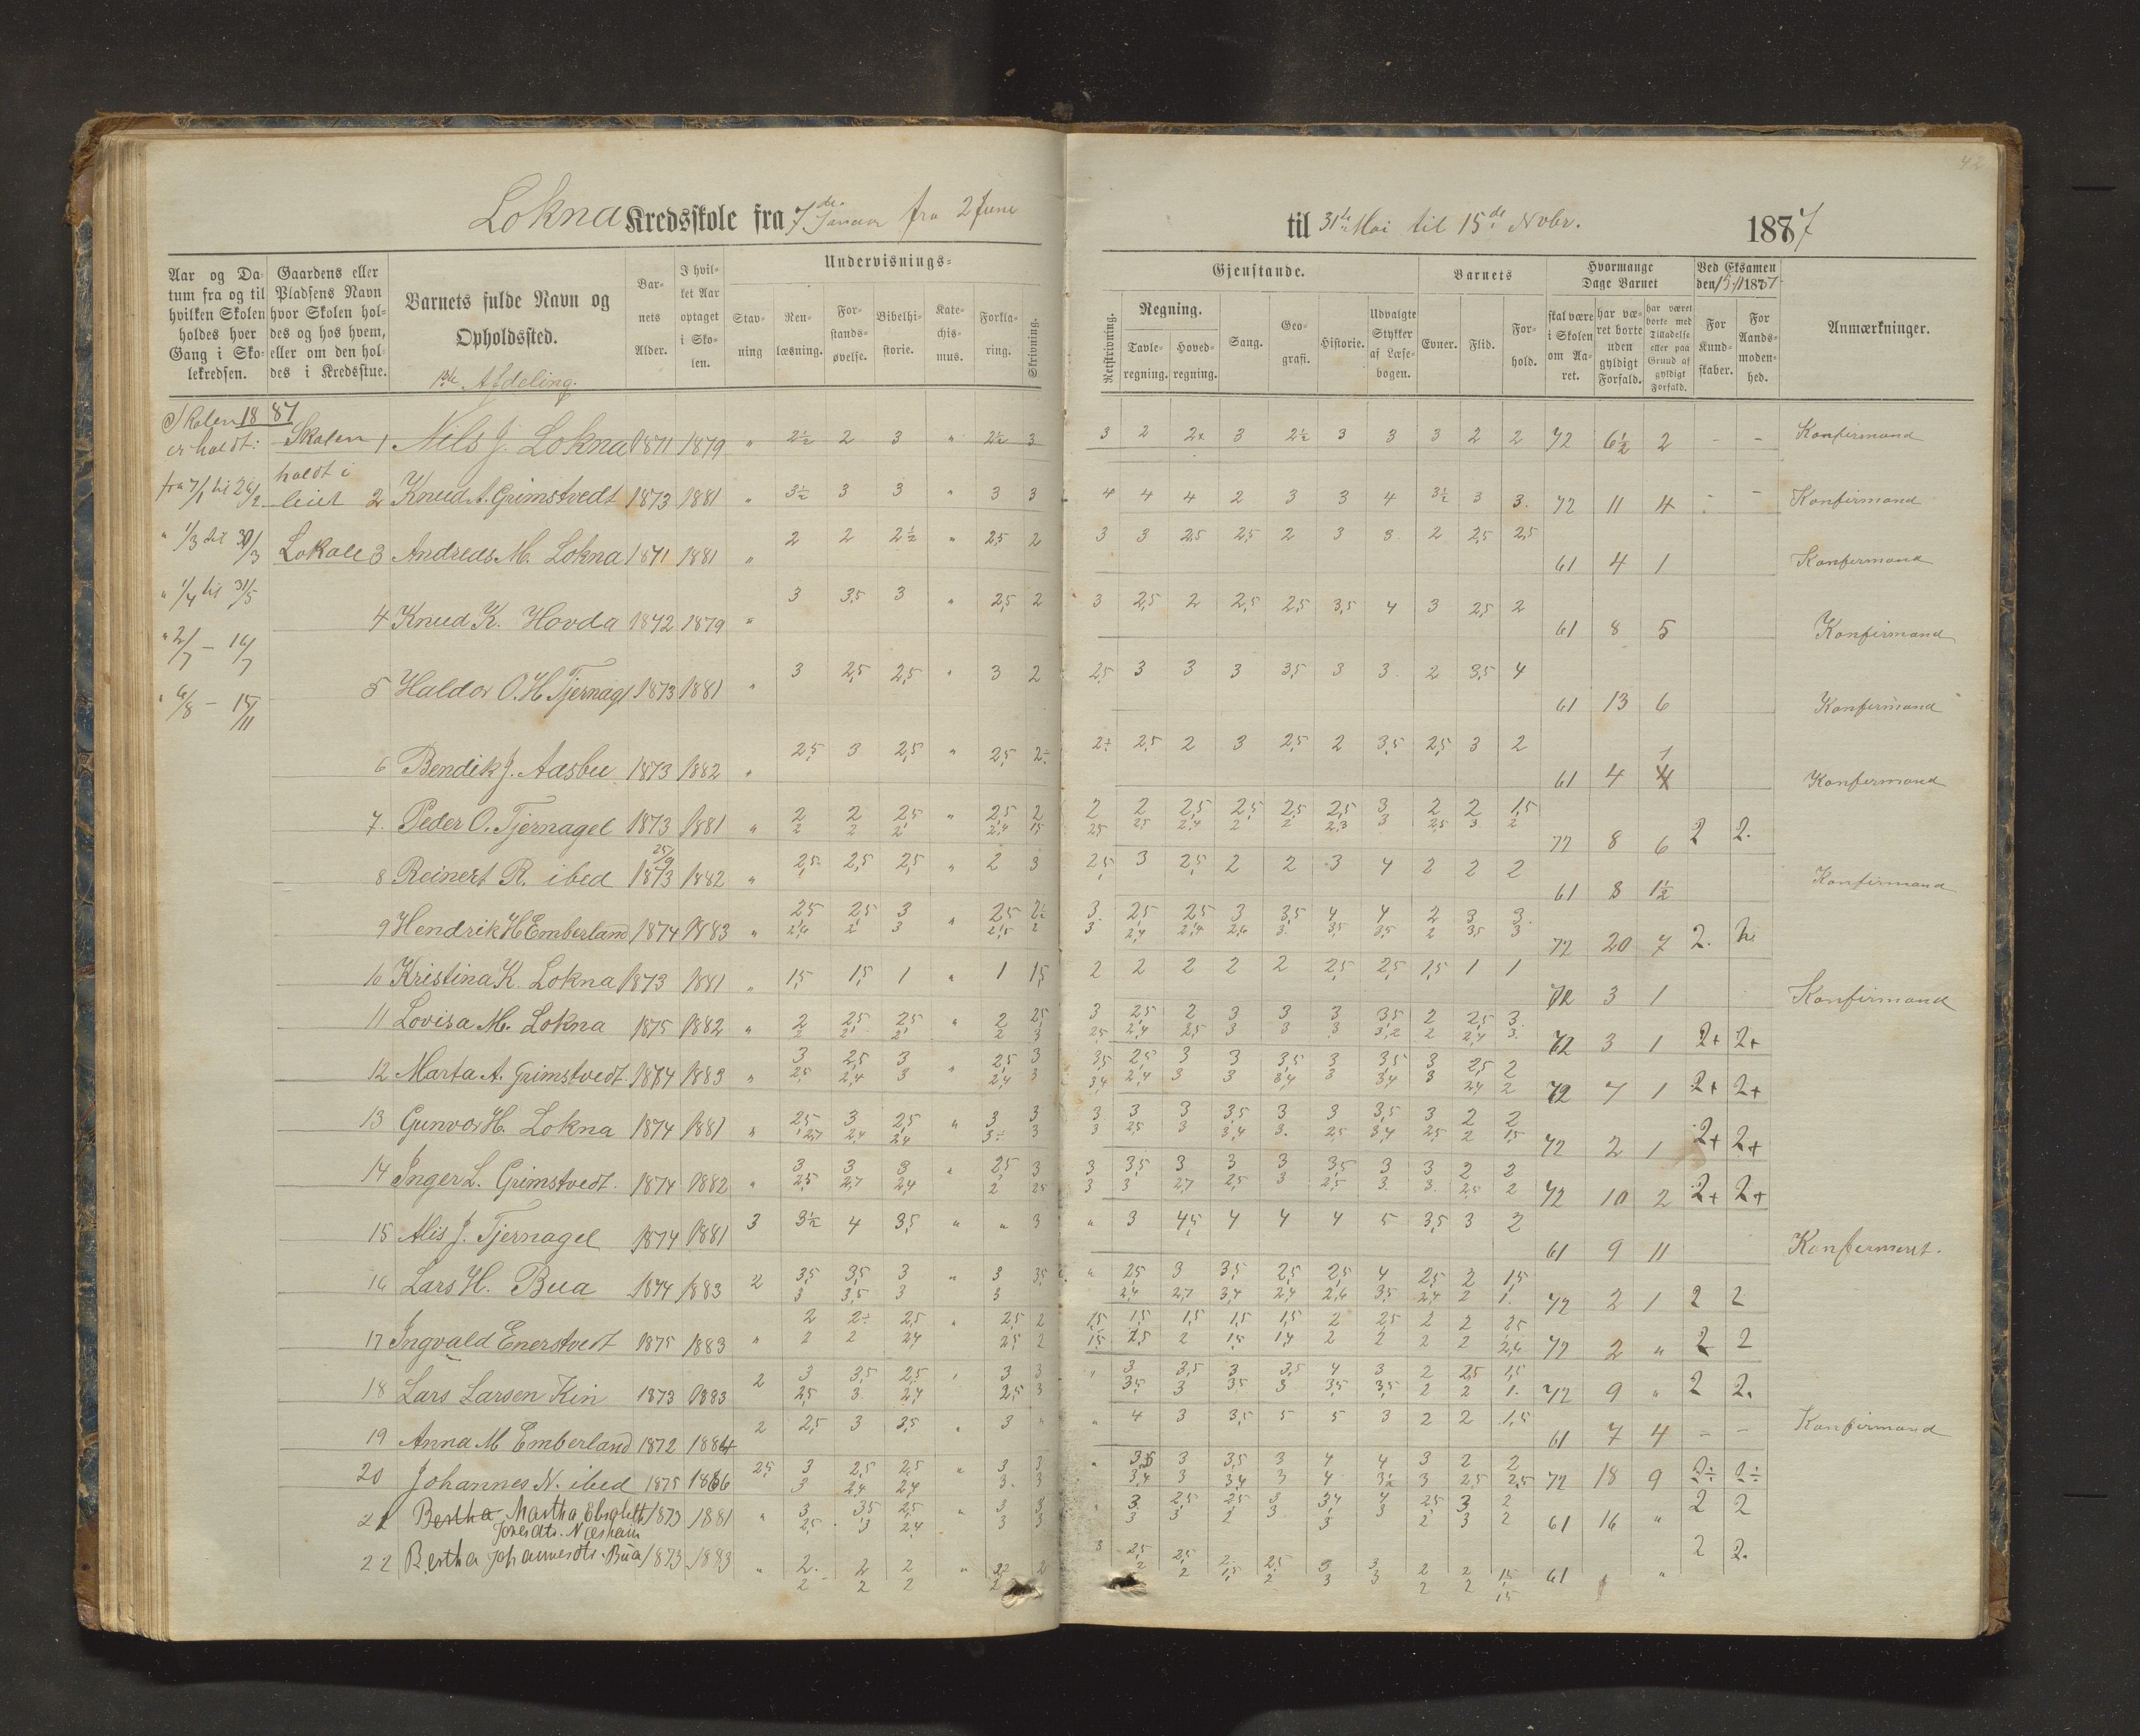 42
Lokna Kredsskole fra 7de Januar fra 2 Juni til 31te Mai til 15de Novbr. 1887
Aar og Datum fra og til hvilken Skolen holdes hver Gang i Skolekredsen.
Gaardens eller Pladsens Navn hvor Skolen holdes og hos hvem, eller om den holdes i Kredsstue.
Barnets fulde Navn og Opholdssted.
1ste Afdeling.
Barnets Alder.
I hvilket Aar optaget i Skolen.
Undervisnings-
Stavning
Renlæsning.
Forstandsøvelse.
Bibelhistorie.
Katechismus.
Forklaring.
Skrivning.
Gjenstande.
Retskrivning.
Regning.
Tavleregning.
Hovedregning.
Sang.
Geografi.
Historie.
Udvalgte Stykker af Læsebogen.
Barnets
Evner.
Flid.
Forhold.
Hvormange Dage Barnet
skal være i Skolen om Aaret.
har været borte uden gyldigt Forfald.
har været borte med Tilladelse eller paa Grund af gyldigt Forfald.
Ved Eksamen den 15/11 1887.
For Kundskaber.
For Aandsmodenhed.
Anmærkninger.
Skolen 1887
er holdt:
fra 7/1 til 26/2
" 1/3 til 30/3
" 1/4 til 31/5
" 2/7 – 16/7
" 6/8 – 15/11
Skolen
holdt i
leiet
Lokale
1 Nils J. Lokna 1871 1879 " 2½ 2 3 " 2½ 3 3 2 2+ 3 2½ 3 3 3 2 2 72 6½ 2 – – Konfirmand
2 Knud A. Grimstvedt 1873 1881 " 3½ 3 3 " 3 3 4 4 4 2 3 3 4 3½ 3 3. 72 11 4 – – Konfirmand
3 Andreas M. Lokna 1871 1881 " 2 2 2½ " 2,5 2 3 3 2,5 2,5 2 3 3 2 2,5 2,5 61 4 1 Konfirmand
4 Knud K. Hovda 1872 1879 " 3 3,5 3 " 2,5 2 3 2,5 2 2,5 2,5 3,5 4 3 2,5 2 61 8 5 Konfirmand
5 Haldor O. H. Tjernagl 1873 1881 " 3 2,5 2,5 " 3 2 2,5 3 3 3 3,5 3 3 2 3,5 4 61 13 6 Konfirmand
6 Bendik J. Aasbu 1873 1882 " 2,5 3 2,5 " 2,5 2÷ 2+ 2,5 2 3 2,5 2 3,5 2,5 3 2 61 4 1 Konfirmand
7. Peder O. Tjernagel 1873 1881 " 2 2 2,5 " 2,5 2 2 2 2,5 2,5 2,5 2,5 3 2 2 1,5 72 8 6 2 2.
2 2 2 2,4 1,5 2,5 2,5 2,4 2 2 2,3 3 2,5 3 2
8 Reinert R. ibed 25/9 1873 1882 " 2,5 2,5 2,5 " 2 3 2,5 3 2,5 2 2 3 4 2 2 2 61 8 1½ Konfirmand
9 Hendrik H Emberland 1874 1883 " 2,5 2,5 3 " 2,5 2½ 3. 2,5 2,5 3 3,5 4 4 2 3 3. 72 20 7 2.
2,6 2 3 2,5 2 3 2,4 2,4 2,6 3. 3,5 3,5 2 3,5 3
10 Kristina K. Lokna 1873 1881 " 1,5 1,5 1 " 1 1,5 2 2 2 2 2 2,5 2,5 1,5 1 1 72 3 1 Konfirmand
11 Lovisa M. Lokna 1875 1882 " 2 2,5 2,5 " 2 2,5 3 2,5 2 3 3 3 3,5 2 2,5 3. 72 3 1 2+ 2+
2 2 2 2 3 2,5 2,4 2,5 3 3 3 3,2 2 2,4 3.
12 Marta A. Grimstvedt. 1874 1883 " 3 2,5 3 " 2,5 3 3,5 2,5 3 3 3,5 3 3,5 3 2,5 2 72 7 1 2+ 2+
2,5 2,4 3 2,4 3 3,4 2,4 3 3 3,4 3 3,4 3 2,4 2
13 Gunvor H. Lokna 1874 1881 " 2,5 3 2,5 " 3 3 3 3 3 3,5 3 3 3,5 3 2 2 72 2 1 2+ 2+
2,7 2,4 2,4 3÷ 3 3 2,5 3 3,4 3. 2,5 3,4 2,5 2 1,5
14 Inger L. Grimstvedt. 1874 1882 " 3 3 3 " 2,5 3 3 3,5 3 3 3 3,5 3 3 2 2 72 10 2 2+ 2+
2,5 2,7 2,4 2 2,5 3 3 2,7 2,5 3 2,5 3. 3. 2,5 2
15 Alis J. Tjernagel 1874 1881 3 3½ 4 3,5 " " 3 " 3 4,5 4 4 4 5 3,5 3 2 61 9 11 Konfirmert.
16 Lars H. Bua 1874 1883 2 3,5 3,5 3 " 3 3,5 " 2,5 3 3,5 2,5 2,5 4 2,5 2 1,5 72 2 1 2 2
3 3,5 3 3 2,4 2,7 3,4 2,4 2,6 3,5 2,4 2 1.
17 Ingvald Enerstvedt 1875 1883 " 2 2÷ 2,5 " 2,5 2 1,5 1,5 1,5 1,5 1,5 2 2,5 2 2 2,5 72 2 " 2 2
2 2 2,4 2,5 2 1,5 2,5 2 1,5 1,4 2 2 2 2 2,6
18 Lars Larsen Kin 1873 1883 2 3 3,5 2,5 " 3 3 " 3 3,5 3 3,5 4 3 2 2,5 1,5 72 9 " 2 2.
2,5 3 2,4 2,5 3 3,5 3 3,5 3 3,5 3,5 2 2 1.
19 Anna M Emberland 1872 1884 2 2,5 3 3,5 " 3 " " 4 3 3,5 5 5 3 2 2 1,5 61 7 4 – – Konfirmand
20 Johannes N. ibed 1875 1886 2,5 3 2,5 2,5 " 3 3 " 3,5 3 3,5 3 4 4 3 2 2 72 18 9 2÷ 2÷
3 2,4 2,4 3. 3 3,4 3 3,4 3 4 3½ 3 2,5 2,5
21 Bertha Martha Elisabeth 1873 1881 " 3 3,5 2,5 " 3 3 " 3 2,5 2,5 3 3,4 4 2,5 3 2 61 16 " 2 2
Jonesdtr. Næsheim 2,5 3 2,4 3 3 3 3 2 3 3 3 2 3 2
22 Bertha Johannesdtr. Bua 1873 1883 " 2. 2 2 " 2 3 2,5 2,5 2 2,5 3 3 2 2 1,5 61 " 2 2.
2 2 2 2 2 2 1,5 2 3 3 2 2 1,5